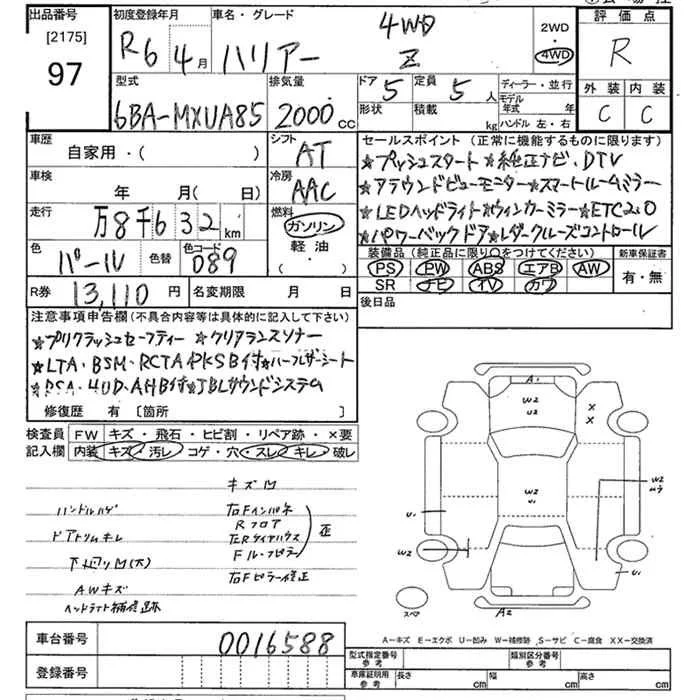 出品番号 初度登録年月 車名・グレード 4WD 2WD 評価点
[2175] R6年 4月 ハリアー Z 4WD R
97
型式 排気量 ドア 5 定員 5人 ディーラー・並行 外装 内装
6BA-MXUA85 2000cc 形状 積載 kg モデル年式 年 C C
ハンドル 左・右
車歴 シフト セールスポイント (正常に機能するものに限ります)
自家用・( ) AT ★プッシュスタート ★純正ナビ、DTV
車検 冷房 ★アラウンドビューモニター ★スマートルームミラー
年 月(日) AAC ★LEDヘッドライト ★ウィンカーミラー ★ETC2.0
走行 燃料 ★パワーバックドア ★レダークルーズコントロール
万8千632km ガソリン
色 色替 色コード 軽油 装備品 (純正品に限り○をつけてください) 新車保証書
パール 089 ( ・ ) PS PW ABS エアB AW 有・無
SR ナビ TV カワ
R券 13,110円 名変期限 月 日 後日品
注意事項申告欄(不具合内容等は具体的に記入して下さい)
★プリクラッシュセーフティー ★クリアランスソナー
★LTA・BSM・RCTA・PKSB付 ★ハーフレザーシート
★RSA・HUD・AHB付 ★JBLサウンドシステム
修復歴 有 [箇所 ]
検査員 FW キズ・飛石・ヒビ割・リペア跡・×要
記入欄 内装 キズ・汚レ コゲ・穴・スレ・キレ・破レ
キズ凹
ハンドルハゲ 右Fインパネ
Rフロア
ドアトリムキレ 右Rタイヤハウス
歪
下廻り凹(大)
右Fピラー修正
AWキズ
ヘッドライト補修跡
A1
W2
U2
X
X
W2
U2
W2
U1
U1
W2
U1
スペア
A2
A-キズ E-エクボ U-凹み W-補修跡 S-サビ C-腐食 XX-交換済
車台番号 0016588
登録番号
型式指定番号 参考 類別区分番号 参考
車庫証明用 参考 長さ cm 幅 cm 高さ cm